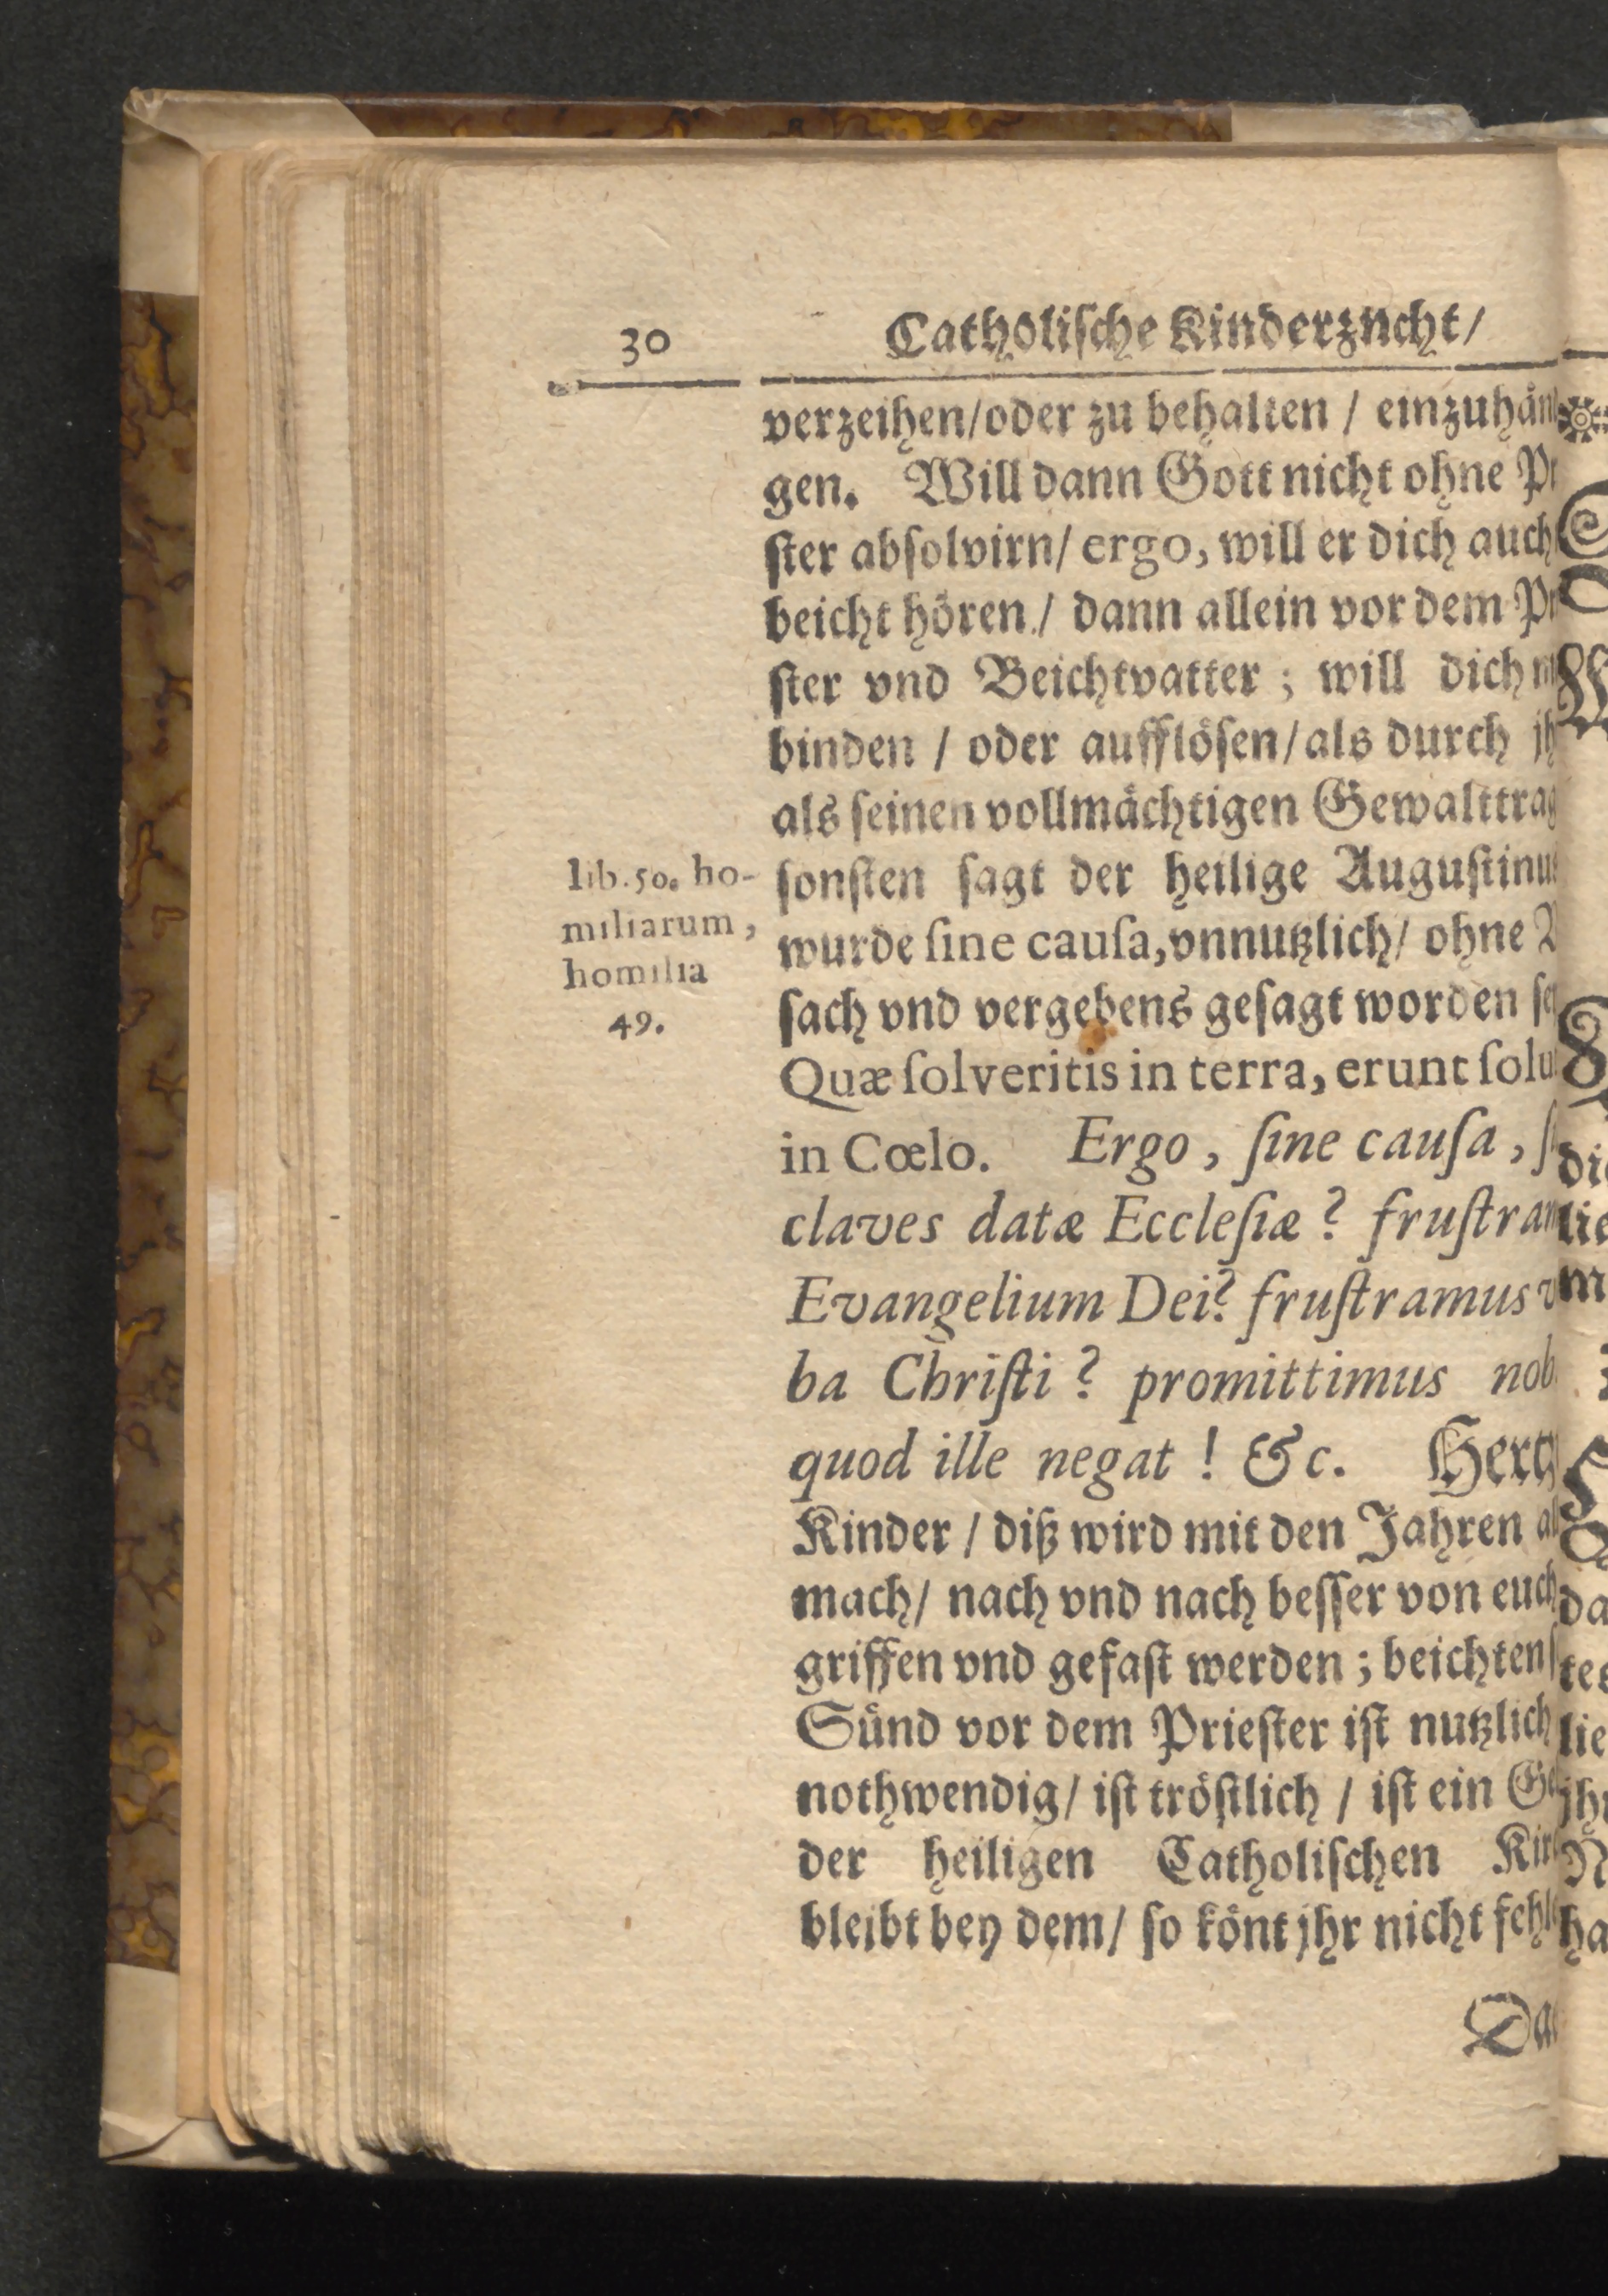 30 Catholische Kinderzncht/
verzeihen/oder zu behalten / einzuhän
gen. Will dann Gott nicht ohne
ster absolvirn/ ergo, will er dich auch
beicht hören / dann allein vor dem
ster vnd Beichtvatter ; will dich
binden / oder aufflösen/als durch
als seinen vollmächtigen Gewalttrag
lib. 50. ho-
miliarum,
homilia
49.
sonsten sagt der heilige Augustinus
wurde ſine cauſa, vnnutzlich/ ohne
sach vnd vergebens gesagt worden
Quæ ſolveritis in terra, erunt ſolu
in Cœlo. Ergo, ſine cauſa,
claves datæ Eccleſiæ? fruſtram
Evangelium Dei? fruſtramus
ba Chriſti? promittimus nob
quod ille negat! &c. Hertz
Kinder / diß wird mit den Jahren
mach/ nach vnd nach besser von euch
griffen vnd gefast werden ; beichten
Sünd vor dem Priester ist nutzlich
nothwendig/ ist tröstlich / ist ein
der heiligen Catholischen
bleibt bey dem/ so könt jhr nicht fehl